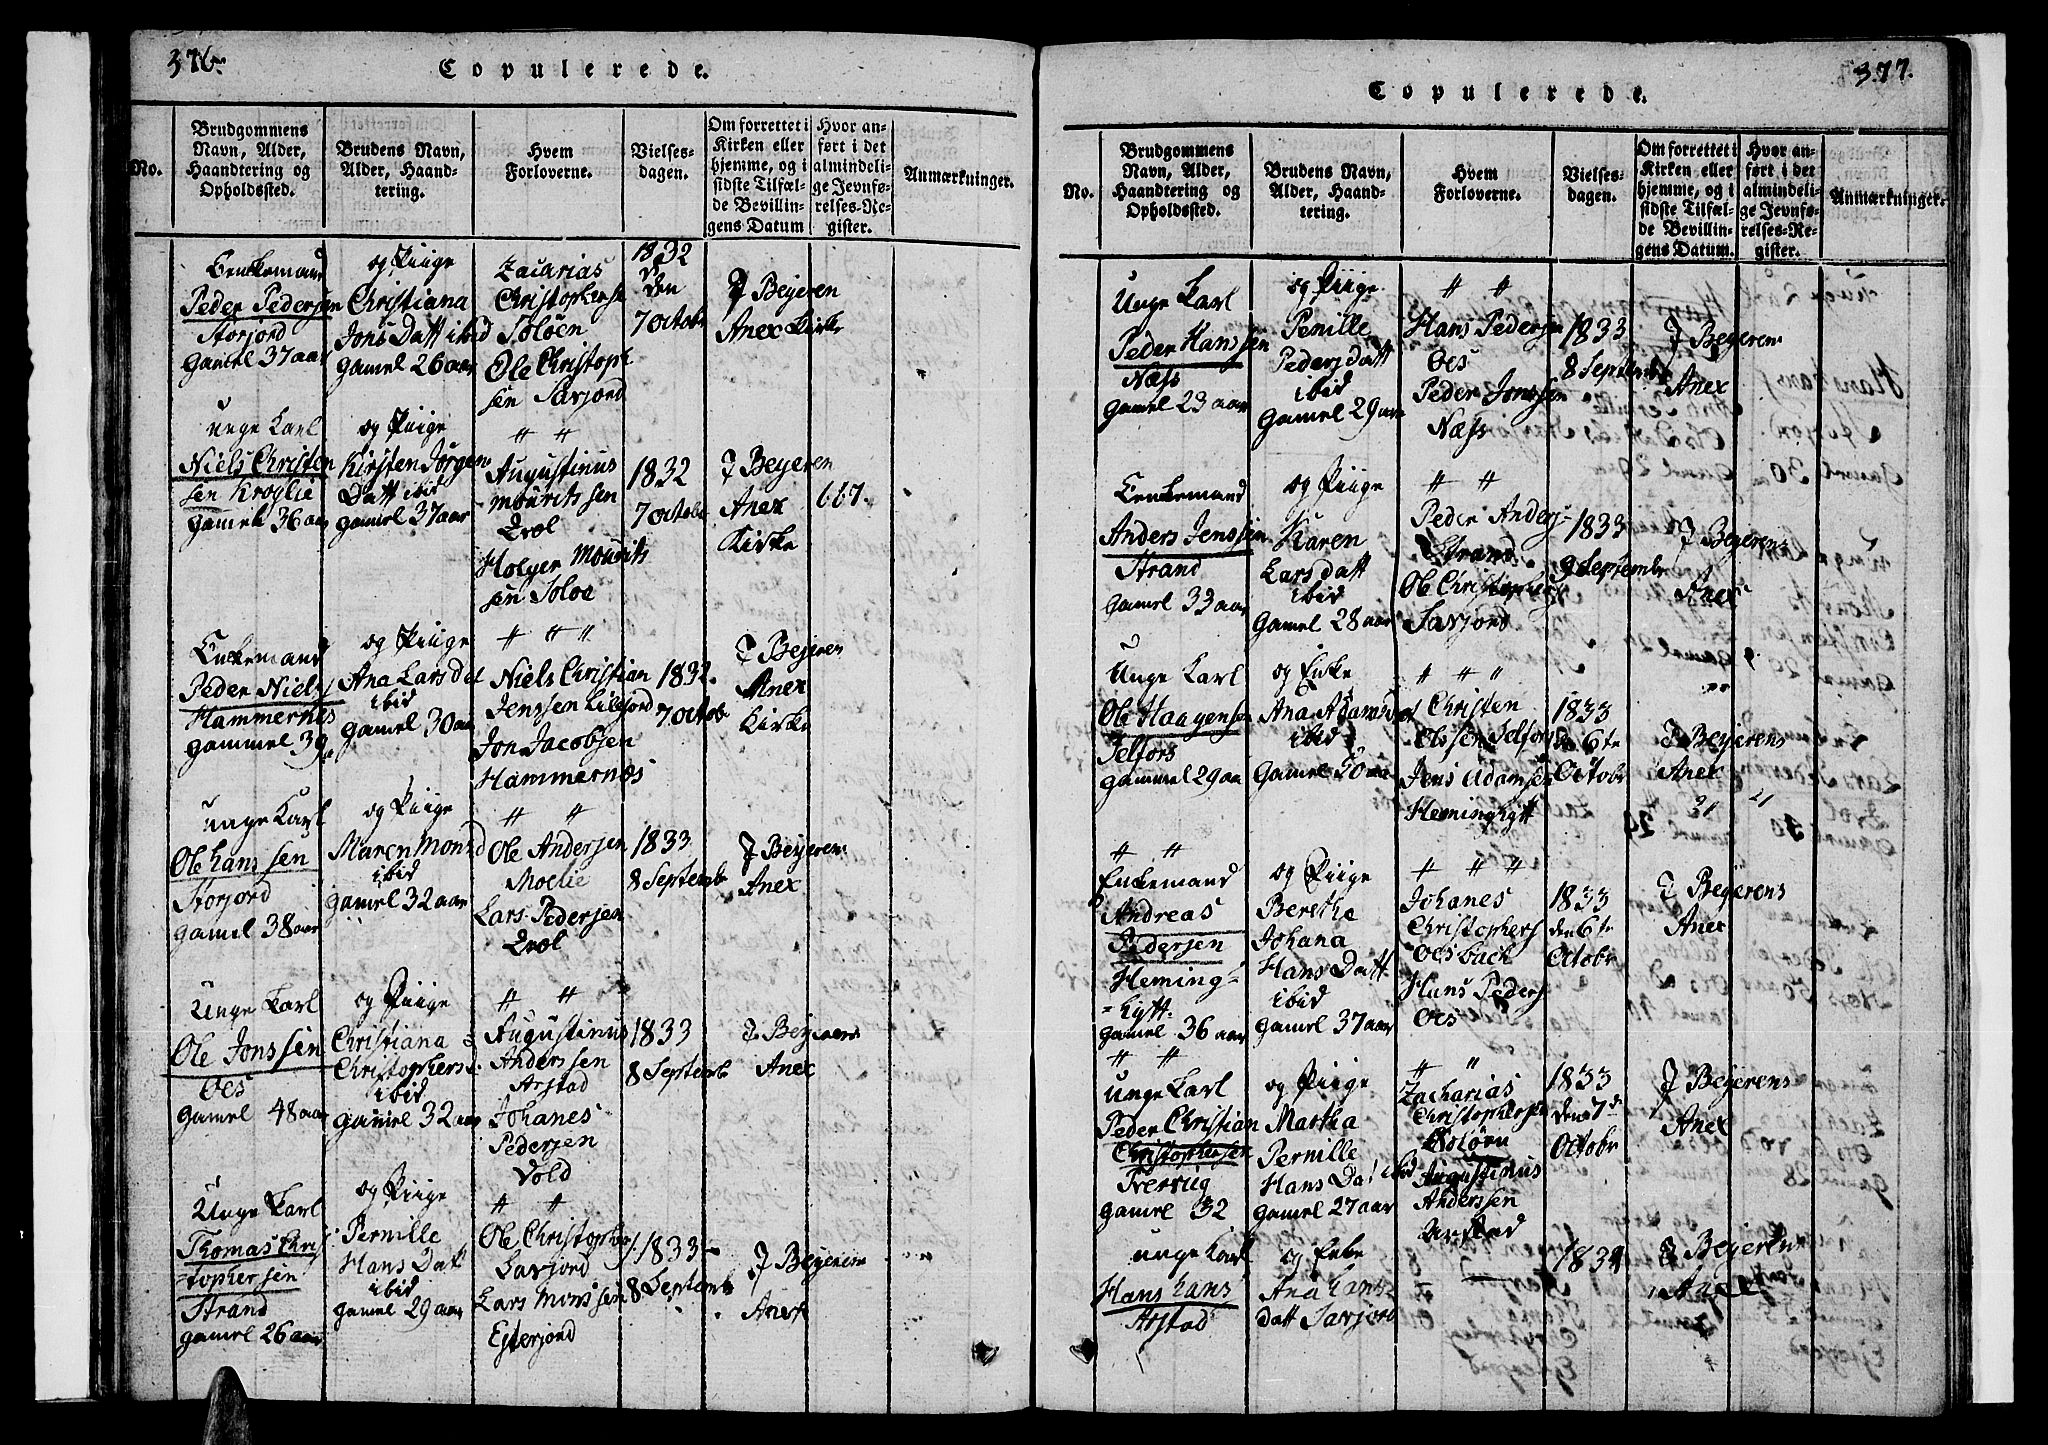 376.
Copulerede.
No.
Brudgommens
Navn, Alder,
Haandtering og
Opholdssted.
Brudens Navn,
Alder, Haand-
tering.
Hvem
Forloverne.
Vielses-
dagen.
Om forrettet i
Kirken eller
hjemme, og i
sidste Tilfæl-
de Bevillin-
gens Datum
Hvor an-
ført i det
almindeli-
ge Jevnfø-
relses-Re-
gister.
Anmærkninger.
Enkemand
Peder Pedersen
Storjord
gamel 37 aar
og Piige
Christiana
Jons Datt ibid
gamel 26 aar
Zacarias
Christophersen
Soløen
Ole Christoph
sen Savjord
1832
den
7 octobr
J Beyeren
Anex Kirke
unge Karl
Niels Christen
sen Kroglie
gamel 36 aar
og Piige
Kirsten Jørgen
Datt ibid
gamel 37 aar
" "
Augustinus
mouritssen
Evæl
Holger Mourits
sen Soloe
1832
7 octobr
J Beyeren
Anex
Kirke
667.
Enkemand
Peder Niels
Hammernes
gammel 39
og Piige
Ana Larsdat
ibid
gamel 30 aar
" " "
Niels Christian
Jenssen Lilejord
Jon Jacobsen
Hammernæs
1832.
7 Octob
J Bejeren
Anex
Kirke
unge Karl
Ole hanssen
Storjord
gamel 38 aar
og Piige
Maren Monsd
ibid
gamel 32 aar
" "
Ole Andersen
Moelie
Lars Pedersen
Evæl
1833
8 Septembr
J Beyeren
Anex
Unge Karl
Ole Jonssen
Oes
gamel 48 aar
og Piige
Christiana
Christophers
ibid
gamel 32 aar
" "
Augustinus
Anderssen
Arstad
Johanes
Pedersen
Vold
1833
8 Septembr
J Beyeren
Anex
Unge Karl
Thomas Chris
tophersen
Strand
gamel 26 aar
og Piige
Pernille
Hans Datt
ibid
gamel 29 aar
" "
Ole Christophers
Savjord
Lars Monssen
Esterjord
1833
8 Septemb
J Beyeren
Anex
377.
Copulerede.
No.
Brudgommens
Navn, Alder,
Haandtering og
Opholdssted.
Brudens Navn,
Alder, Haand-
tering.
Hvem
Forloverne.
Vielses-
dagen.
Om forrettet i
Kirken eller
hjemme, og i
sidste Tilfæl-
de Bevillin-
gens Datum.
Hvor an-
ført i det
almindeli-
ge Jevnfø-
relses-Re-
gister.
Anmærkninger.
Unge Karl
Peder Hanssen
Næss
gamel 23 aar
og Piige
Penille
Pedersdatt
ibid
gamel 29 aar
" "
Hans Pedersen
Oes
Peder Jonssen
Næss
1833
8 Septembr
J Begeren
Anex
Enkemand
Anders Jenssen
Strand
gamel 33 aar
og Piige
Karen
Larsdatt
ibid
gamel 28 aar
" "
Peder Anders
Strand
Ole Christophers
Savjord
1833
9 Septembr
J Begerens
Anex
Unge Karl
Ole Haagensen
Selfors
gammel 29 aar
og Enke
Ana Adamsdat
ibid
gamel 50 aar
" " "
Christen
Olssen Selfors
Jens Adamsen
Heminghytt
1833
den 6te
Octobr
J Beyerens
Anex
" "
Enkemand
Andreas
Pedersen
Heming
hytt
gamel 36 aar
og Piige
Berethe
Johana
Hans Datt
ibid
gamel 37 aar
" " "
Johanes
Christophers
Oesbach
Hans Peders
Oes
1833
den 6te
Octobr
J Begerens
Anex
" "
unge Karl
Peder Christian
Christophersen
Tvervig
gamel 32
og Piige
Martha
Pernille
Hans Dat ibid
gamel 27 aar
" "
Zacharias
Christophersen
Soløen
Augustinus
Anderssen
Arstad
1833
den 7d
Octobr
J Begerens
Anex
unge Karl
Hans hans
Arstad
og Enke
Ana hans
datt Savjord
1834
J Begeren
Anex